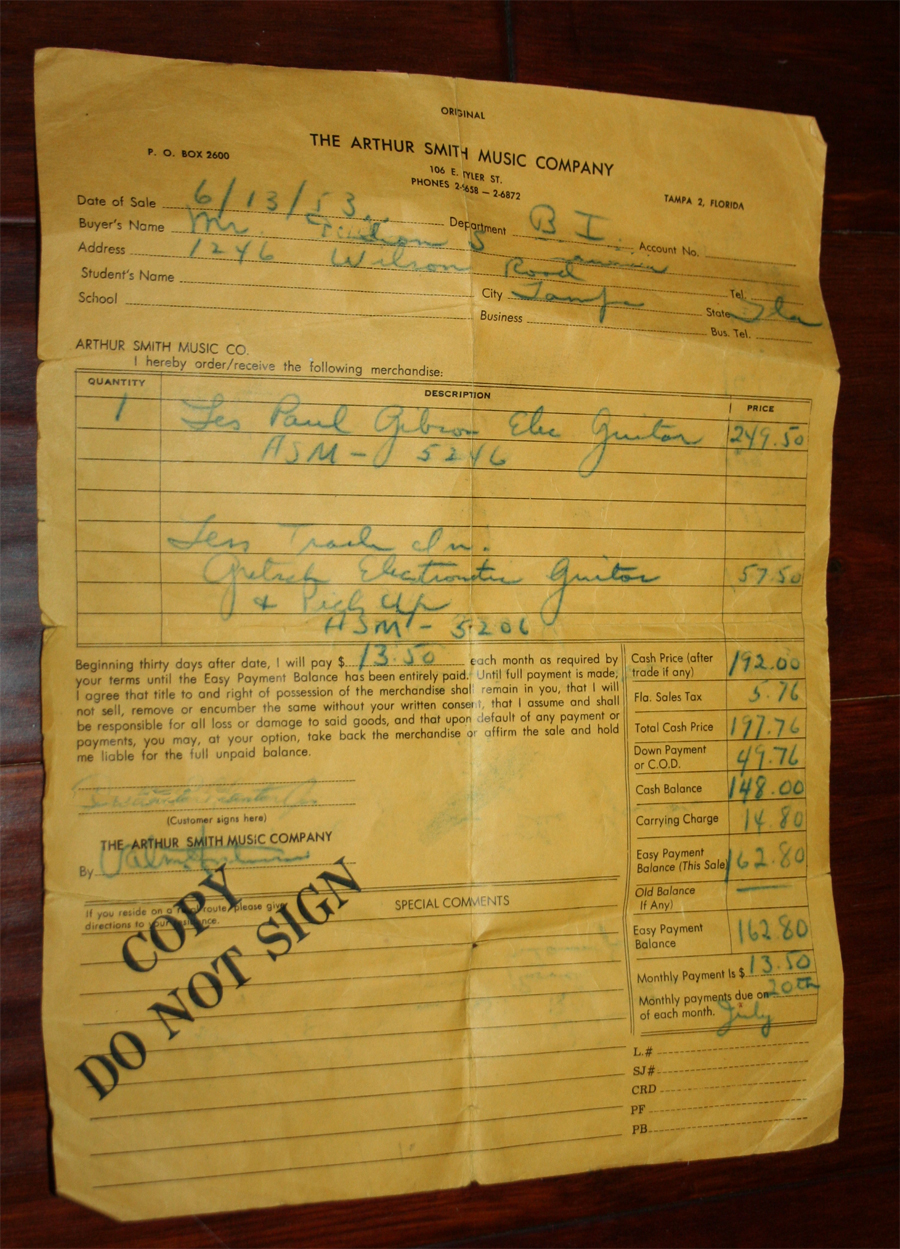 ORIGINAL
THE ARTHUR SMITH MUSIC COMPANY
P. O. BOX 2600
106 E. TYLER ST.
PHONES 2-  658 — 2-6872
TAMPA 2, FLORIDA
Date of Sale 6/13/53 Department B I Account No.
Buyer's Name Mr.
Address 1246 Wilson Road Tel.
Student's Name City Tampa State Fla
School Business Bus. Tel.
ARTHUR SMITH MUSIC CO.
I hereby order/receive the following merchandise:
QUANTITY DESCRIPTION PRICE
1 Les Paul Gibson Elec Guitar 249.50
ASM - 5246
Less Trade In.
Gretsch Guitar 57.50
& Pick Up
ASM - 5206
Beginning thirty days after date, I will pay $ 13.50 each month as required by
your terms until the Easy Payment Balance has been entirely paid. Until full payment is made,
I agree that title to and right of possession of the merchandise shall remain in you, that I will
not sell, remove or encumber the same without your written consent, that I assume and shall
be responsible for all loss or damage to said goods, and that upon default of any payment or
payments, you may, at your option, take back the merchandise or affirm the sale and hold
me liable for the full unpaid balance.
(Customer signs here)
THE ARTHUR SMITH MUSIC COMPANY
By
If you reside on a rural route, please give
directions to your residence.
COPY
DO NOT SIGN
SPECIAL COMMENTS
Cash Price (after
trade if any) 192.00
Fla. Sales Tax 5.76
Total Cash Price 197.76
Down Payment
or C.O.D. 49.76
Cash Balance 148.00
Carrying Charge 14.80
Easy Payment
Balance (This Sale) 162.80
Old Balance
If Any)
Easy Payment
Balance 162.80
Monthly Payment Is $ 13.50
Monthly payments due on 20th
of each month. July
L.#
SJ#
CRD
PF
PB